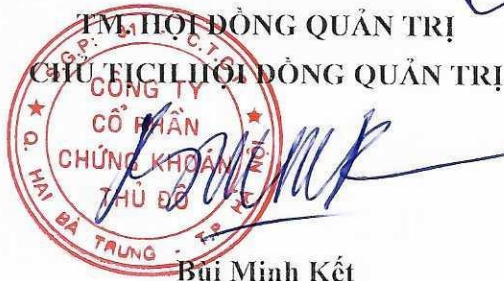 TM. HỘI ĐỒNG QUẢN TRỊ
CHỦ TỊCH HỘI ĐỒNG QUẢN TRỊ
CÔNG TY
CỔ PHẦN
CHỨNG KHOÁN
THỦ ĐÔ
Q. HAI BÀ TRƯNG - T.P HÀ NỘI
Bùi Minh Kết